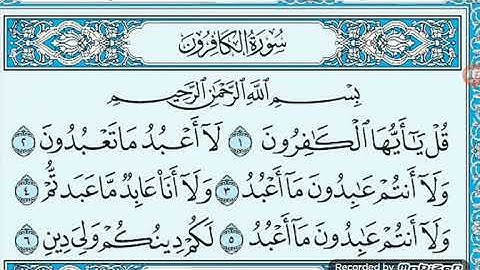 سُورَةُ الكَافِرُونَ
بِسْمِ اللَّهِ الرَّحْمَٰنِ الرَّحِيمِ
قُلْ يَا أَيُّهَا الْكَافِرُونَ ١ لَا أَعْبُدُ مَا تَعْبُدُونَ ٢
وَلَا أَنتُمْ عَابِدُونَ مَا أَعْبُدُ ٣ وَلَا أَنَا عَابِدٌ مَّا عَبَدتُّمْ ٤
وَلَا أَنتُمْ عَابِدُونَ مَا أَعْبُدُ ٥ لَكُمْ دِينُكُمْ وَلِيَ دِينِ ٦
Recorded by